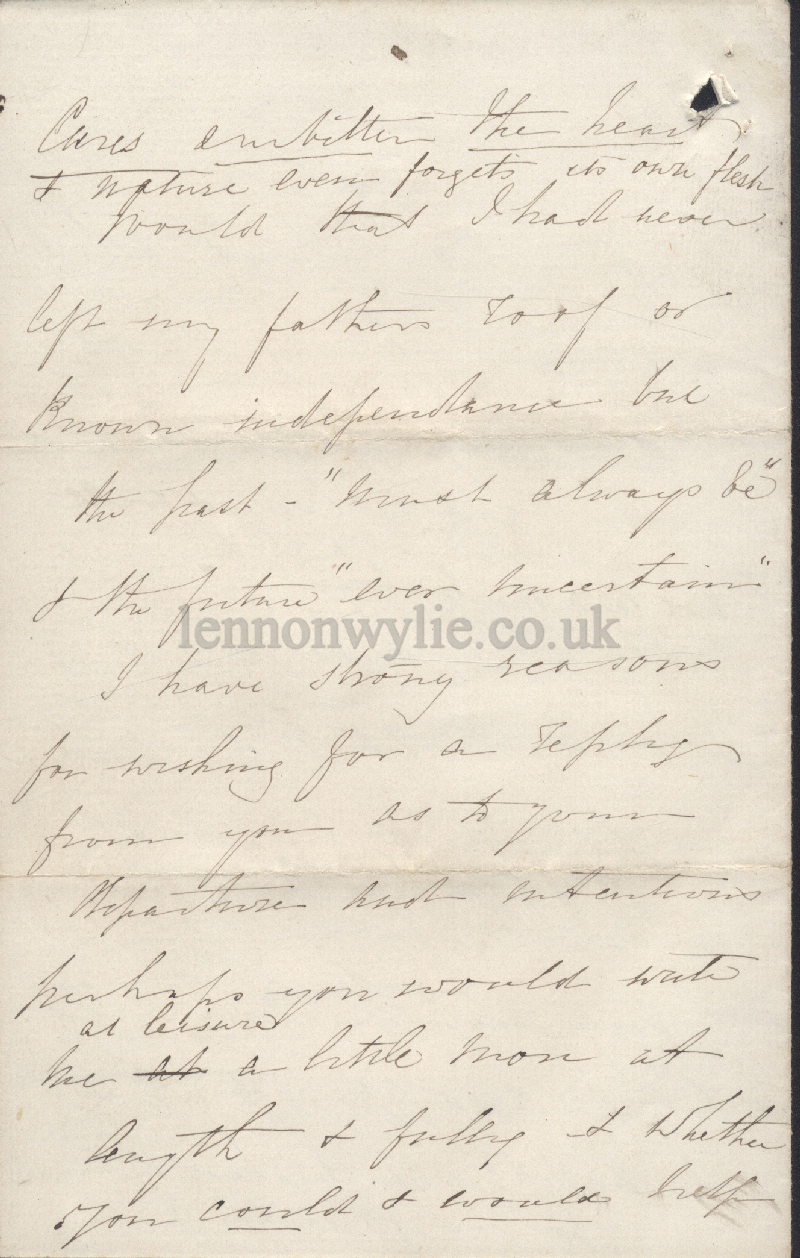 Cares embitter the heart
& nature even forgets its own flesh
Would that I had never
left my fathers roof or
known independance but
the past - "must always be"
& the future "ever uncertain"
lennonwylie.co.uk
I have strong reasons
for wishing for a reply
from you as to your
departure and intentions
perhaps you would write
at leisure
me at a little more at
length & fully & whether
you could & would help